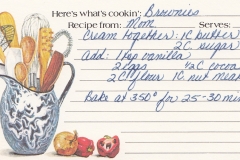 Here's what's cookin': Brownies
Recipe from: Mom Serves:
Cream together: 1C butter
2C sugar
Add: 1 tsp vanilla
2 eggs ½C cocoa
2C flour 1C nut meats
Bake at 350° for 25-30 min